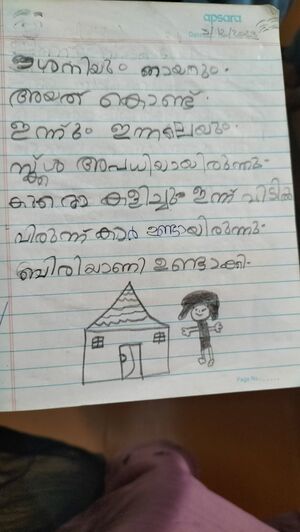 apsara
Date 3/12/2023
ഇശനിയും ഞായറും.
അയത് കൊണ്ട്
ഇന്ന്ും ഇന്നലെയും
അപധിയായിരുന്നു.
കുറെ കളിച്ചു ഇന്ന് വിടിൽ
വിരുന്ന് കാർ ഉണ്ടായിരുന്നു.
ബിരിയാണി ഉണ്ടാക്കി.
Page No.